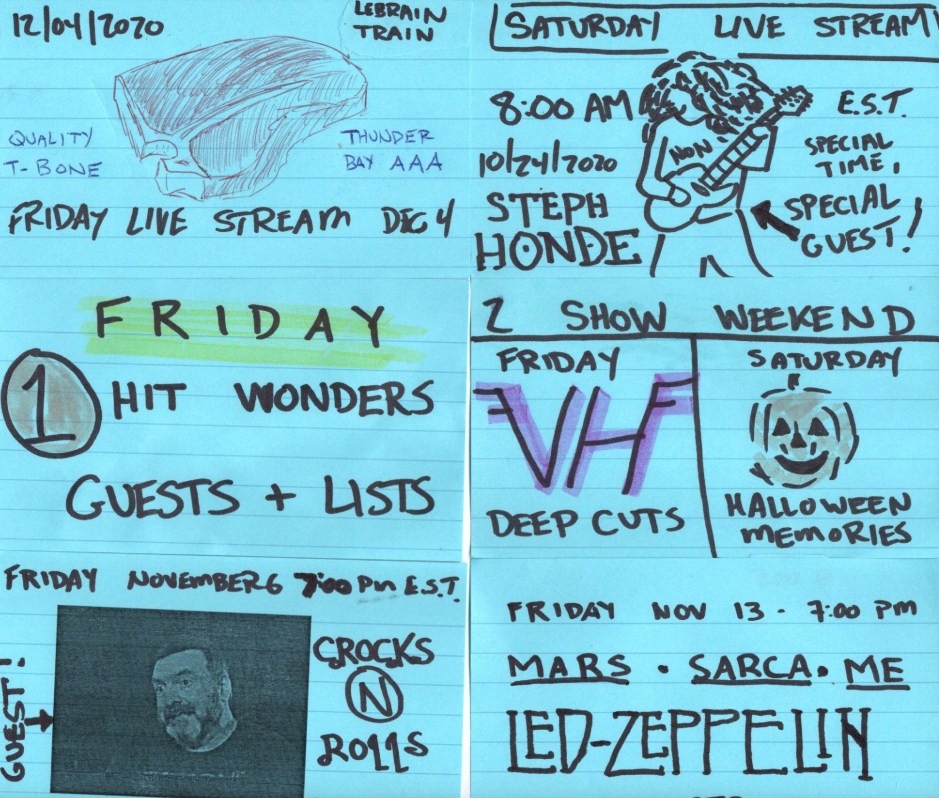 12/04/2020
LEBRAIN
TRAIN
QUALITY
T-BONE
THUNDER
BAY AAA
FRIDAY LIVE STREAM DEC 4
SATURDAY LIVE STREAM
8:00 AM
E.S.T.
10/24/2020
SPECIAL
TIME,
STEPH
HONDE
NON
SPECIAL
GUEST!
FRIDAY
1 HIT WONDERS
GUESTS + LISTS
2 SHOW WEEKEND
FRIDAY
VH
DEEP CUTS
SATURDAY
HALLOWEEN
MEMORIES
FRIDAY NOVEMBER 6 7:00 PM E.S.T.
GUEST!
CROCKS
N
ROLLS
FRIDAY NOV 13 - 7:00 PM
MARS • SARCA • ME
LED-ZEPPELIN